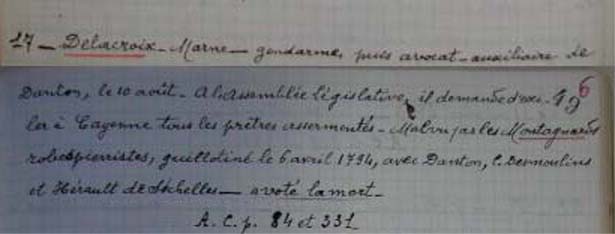 17 - Delacroix - Marne - gendarme, puis avocat - auxiliaire de
Danton, le 10 août - A l'Assemblée législative, il demande d'exi- 196
ler à Cayenne tous les prêtres assermentés - Mal vu par les Montagnards
robespierristes, guillotiné le 6 avril 1794, avec Danton, C. Desmoulins
et Hérault de Séchelles - a voté la mort -
A. C. p. 84 et 331